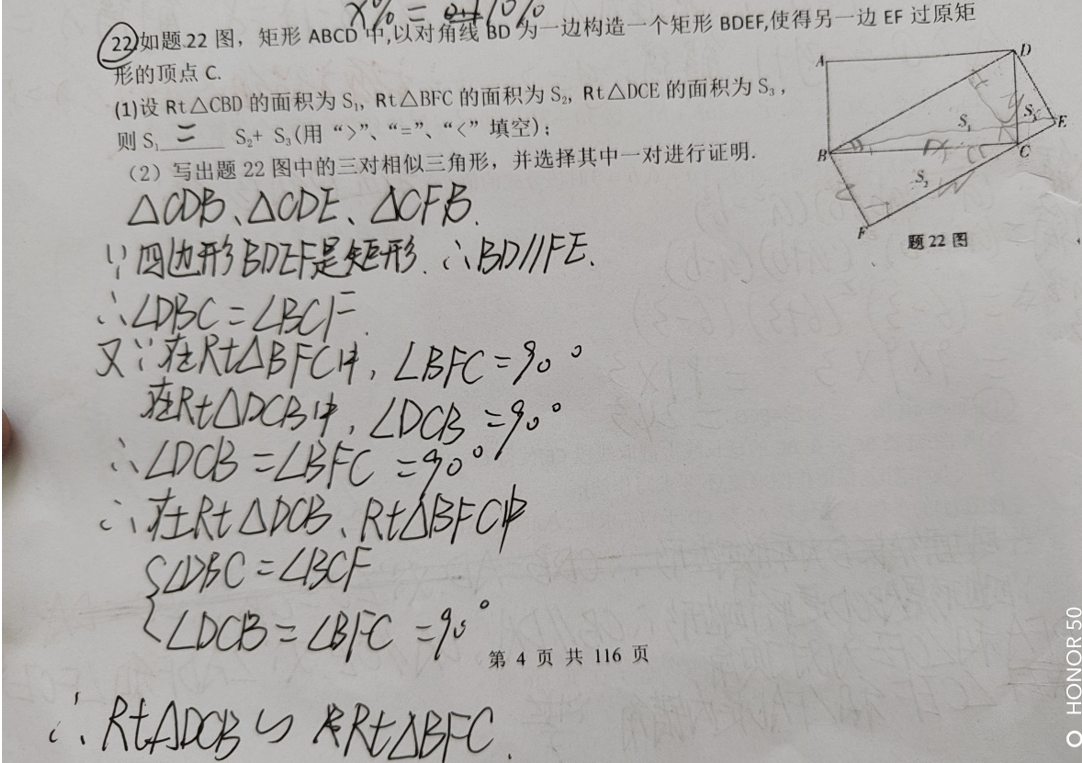 x% =
22.如题.22 图，矩形 ABCD 中,以对角线 BD 为一边构造一个矩形 BDEF,使得另一边 EF 过原矩
形的顶点 C.
(1)设 Rt△CBD 的面积为 S₁, Rt△BFC 的面积为 S₂, Rt△DCE 的面积为 S₃ ,
则 S₁ = S₂+ S₃(用“>”、“=”、“<” 填空)；
（2）写出题 22 图中的三对相似三角形，并选择其中一对进行证明.
A
D
B
C
E
F
S₁
S₂
S₃
题 22 图
△CDB、△CDE、△CFB.
∵四边形BDEF是矩形.∴BD//FE.
∴∠DBC=∠BCF.
又∵在Rt△BFC中, ∠BFC=90°
在Rt△DCB中, ∠DCB=90°
∴∠DCB=∠BFC=90°
∴在Rt△DCB、Rt△BFC中
∠DBC=∠BCF
∠DCB=∠BFC=90°
第 4 页 共 116 页
∴Rt△DCB∽Rt△BFC.
HONOR 50